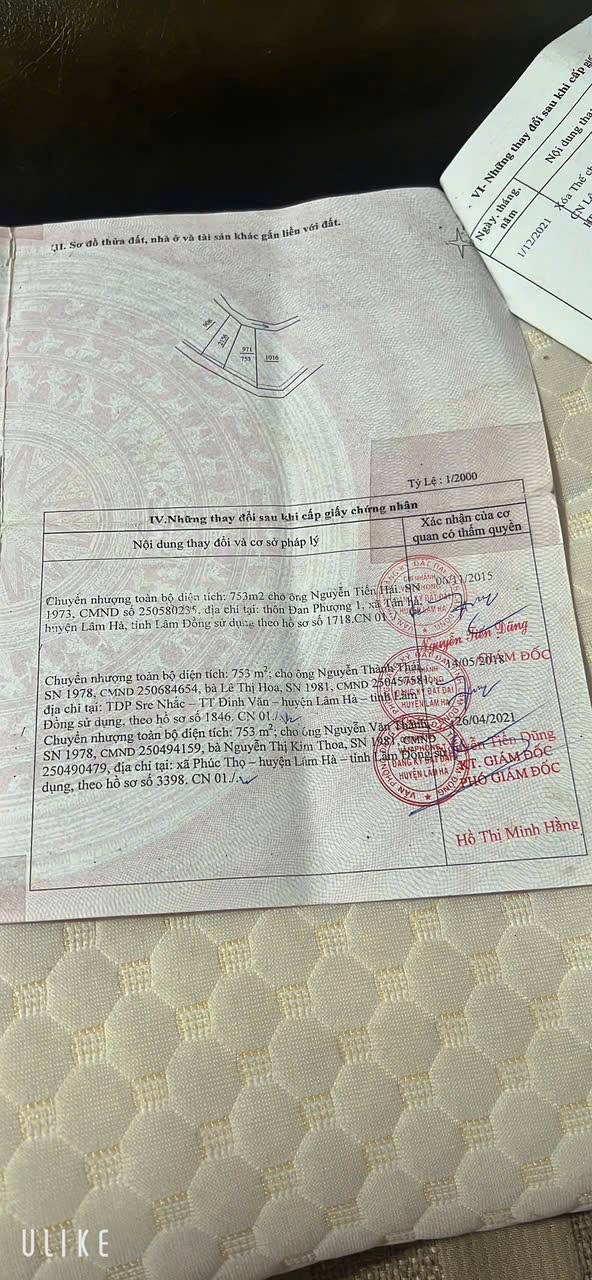 III. Sơ đồ thửa đất, nhà ở và tài sản khác gắn liền với đất.
971
753
1016
Tỷ Lệ : 1/2000
IV.Những thay đổi sau khi cấp giấy chứng nhận
Nội dung thay đổi và cơ sở pháp lý
Xác nhận của cơ
quan có thẩm quyền
Chuyển nhượng toàn bộ diện tích: 753m2 cho ông Nguyễn Tiến Hải, SN
1973, CMND số 250580235, địa chỉ tại: thôn Đan Phượng 1, xã Tân hà,
huyện Lâm Hà, tỉnh Lâm Đồng sử dụng theo hồ sơ số 1718.CN 01.
/11/2015
Nguyễn Tiến Dũng
Chuyển nhượng toàn bộ diện tích: 753 m²; cho ông Nguyễn Thành Thái,
SN 1978, CMND 250684654, bà Lê Thị Hoa, SN 1981, CMND 250457581,
địa chỉ tại: TDP Sre Nhắc – TT Đinh Văn – huyện Lâm Hà – tỉnh Lâm
Đồng sử dụng, theo hồ sơ số 1846. CN 01./.
14/05/2018
GIÁM ĐỐC
Chuyển nhượng toàn bộ diện tích: 753 m²; cho ông Nguyễn Văn Thành,
SN 1978, CMND 250494159, bà Nguyễn Thị Kim Thoa, SN 1987, CMND
250490479, địa chỉ tại: xã Phúc Thọ – huyện Lâm Hà – tỉnh Lâm Đồng sử
dụng, theo hồ sơ số 3398. CN 01./.
26/04/2021
Tiến Dũng
KT. GIÁM ĐỐC
PHÓ GIÁM ĐỐC
ĐĂNG KÝ ĐẤT ĐAI
HUYỆN LÂM HÀ
Hồ Thị Minh Hằng
VI- Những thay đổi sau khi cấp giấy
Ngày, tháng,
năm
Nội dung thay
1/12/2021
Xóa Thế
ULIKE